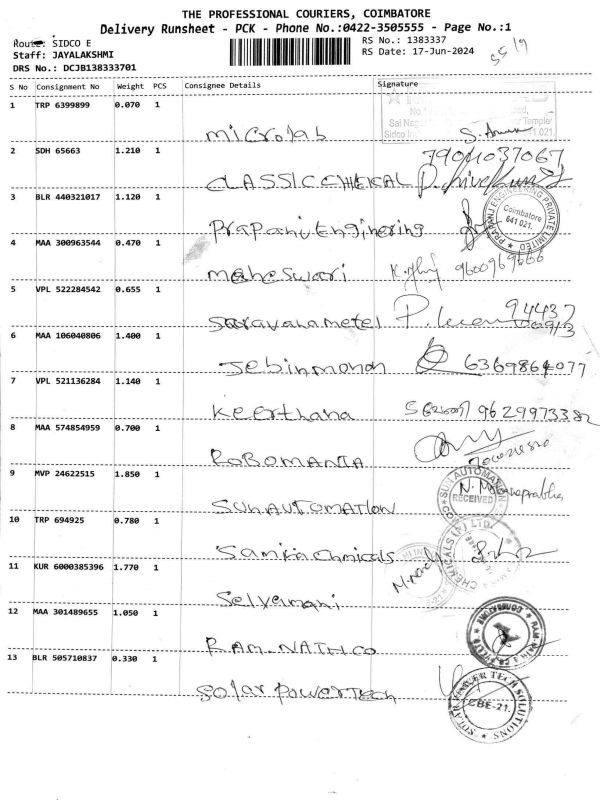 THE PROFESSIONAL COURIERS, COIMBATORE
Delivery Runsheet - PCK - Phone No.:0422-3505555 - Page No.:1
Route: SIDCO E
RS No.: 1383337
Staff: JAYALAKSHMI
RS Date: 17-Jun-2024
DRS No.: DCJB138333701
S No Consignment No Weight PCS Consignee Details Signature
1 TRP 6399899 0.070 1
microlab
2 SDH 65663 1.210 1
7904037067
CLASSIC CHEMICAL
3 BLR 440321017 1.120 1
Prapanj Enginering
PRAPANJ ENGINEERING PRIVATE LIMITED
Coimbatore
641 021.
4 MAA 300963544 0.470 1
maheswari 9600969666
5 VPL 522284542 0.655 1
Saravanametel
94437
6 MAA 106040806 1.400 1
Jebinmonah 6369864077
7 VPL 521136284 1.140 1
Keerthana 9629973382
8 MAA 574854959 0.700 1
ROBOMANIA
9 MVP 24622515 1.850 1
SUN AUTOMATION
RECEIVED
SUN AUTOMATION
10 TRP 694925 0.780 1
Samika Chmicals
CHEMICALS (P) LTD.
11 KUR 6000385396 1.770 1
Selvamani
12 MAA 301489655 1.050 1
RAM-NATH CO
13 BLR 505710837 0.330 1
Solar PowerTech
SOLAR POWER TECH SOLUTIONS
CBE-21.